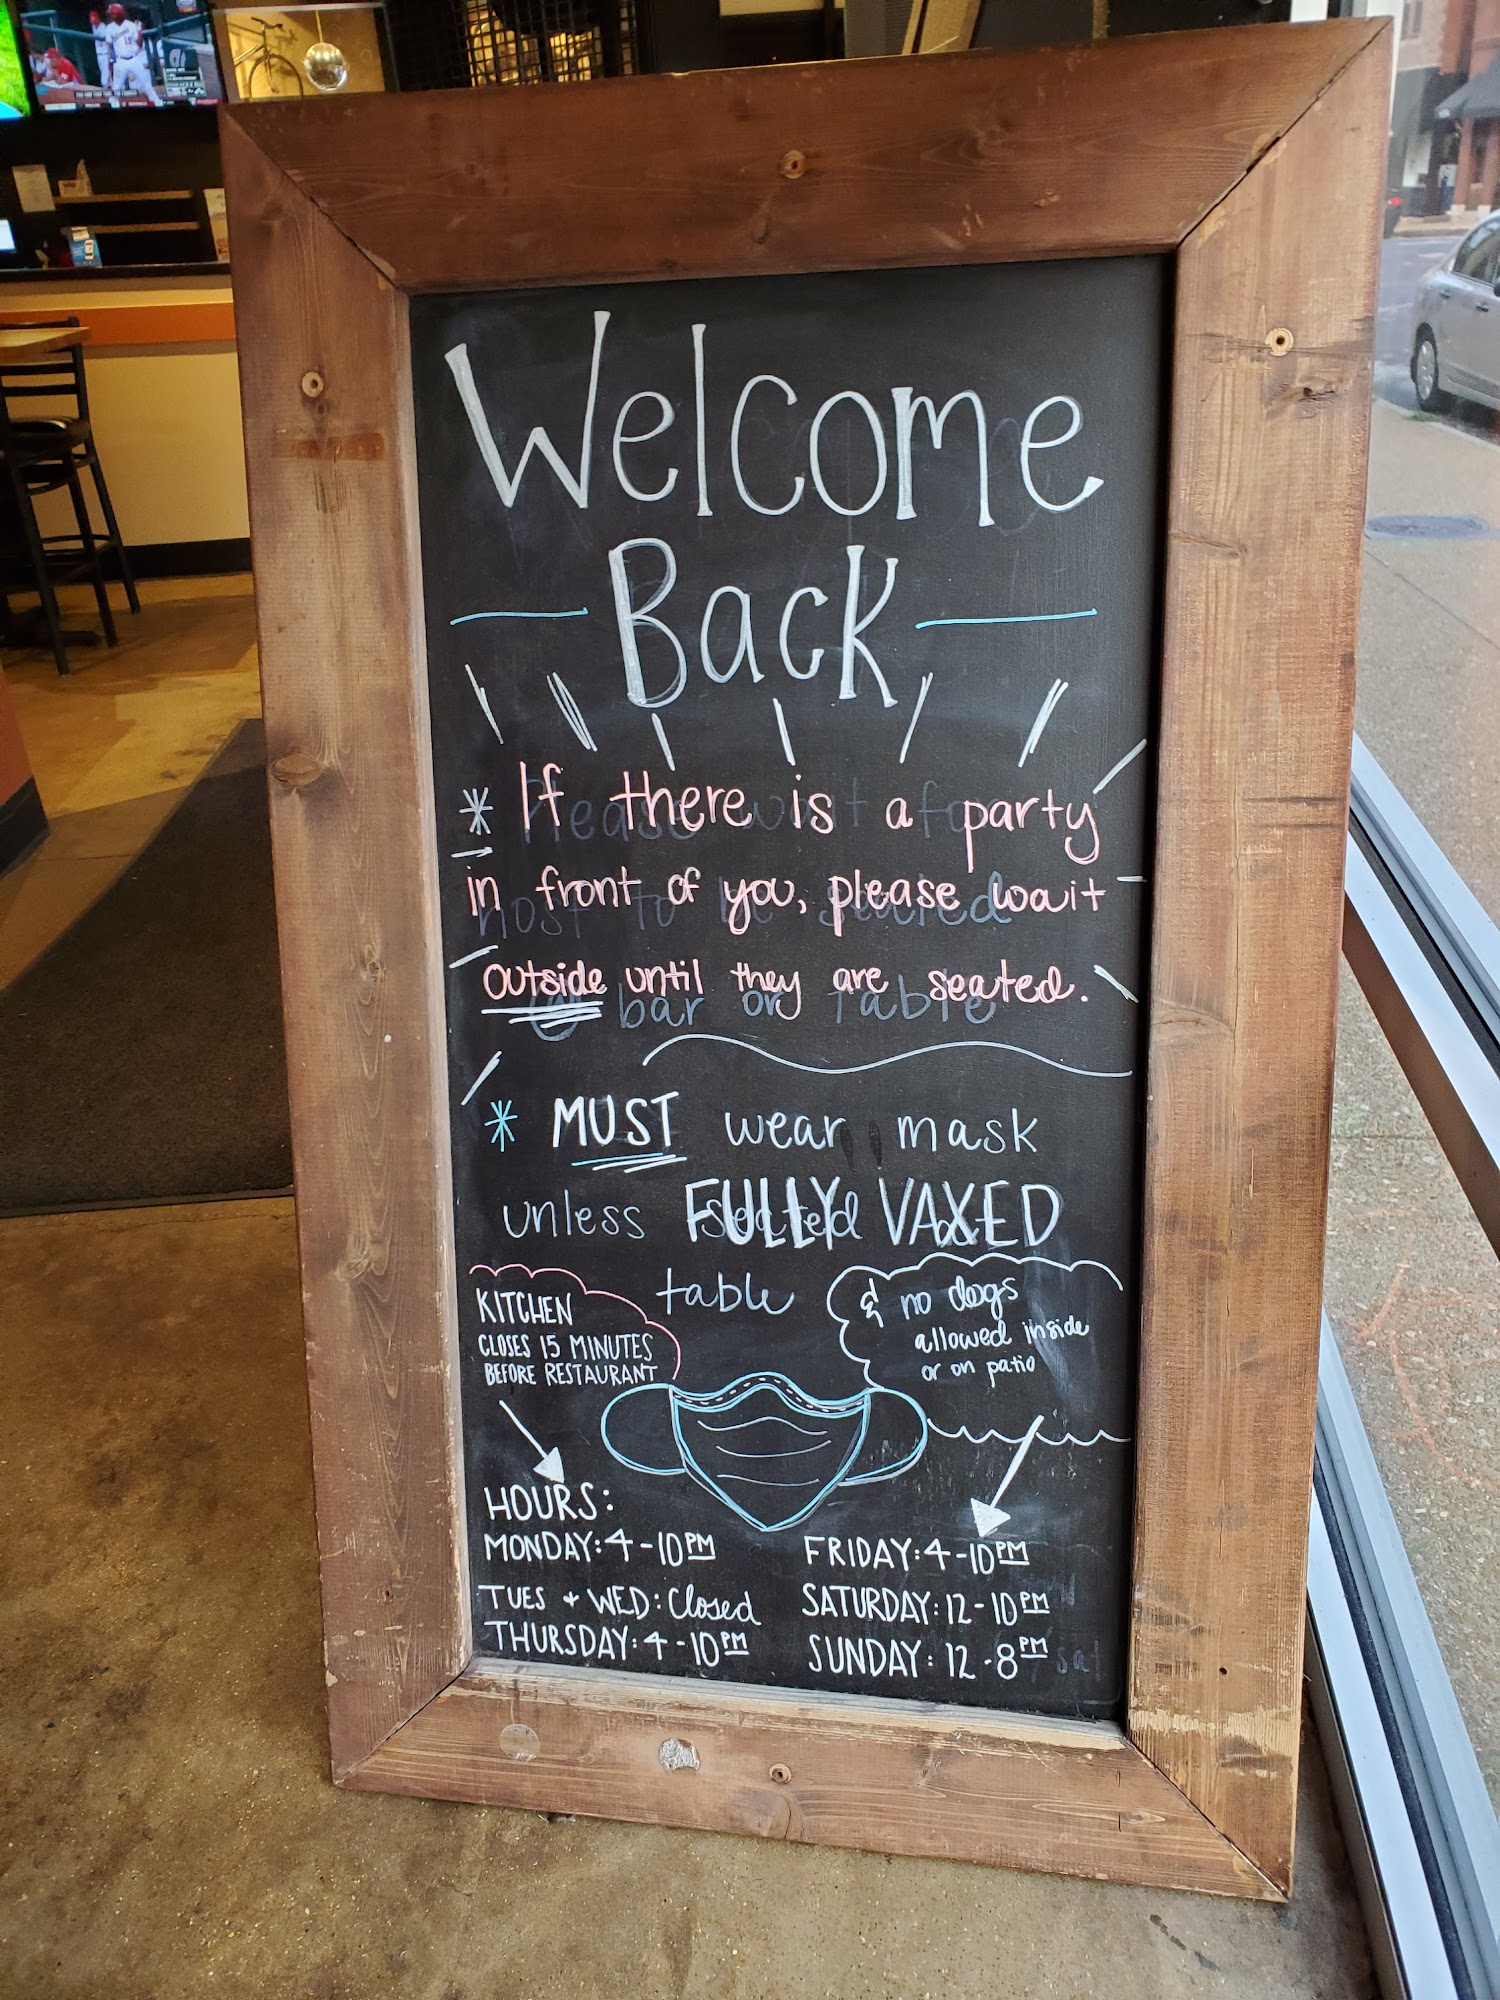 Welcome
Back
* If there is a party
in front of you, please wait
outside until they are seated.
Please wait for
host to be seated
@ bar or table
* MUST wear mask
unless FULLY VAXED
seated at
table
KITCHEN
CLOSES 15 MINUTES
BEFORE RESTAURANT
& no dogs
allowed inside
or on patio
HOURS:
MONDAY: 4-10PM
TUES + WED: Closed
THURSDAY: 4-10PM
FRIDAY: 4-10PM
SATURDAY: 12-10PM
SUNDAY: 12-8PM